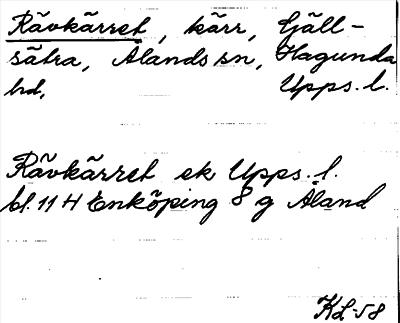 Rävkärret, kärr, Gjäll-
sätra, Ålands sn, Hagunda
hd, Upps. l.
Rävkärret ek Upps. l.
bl. 11 H Enköping 8 g Åland
KL-58